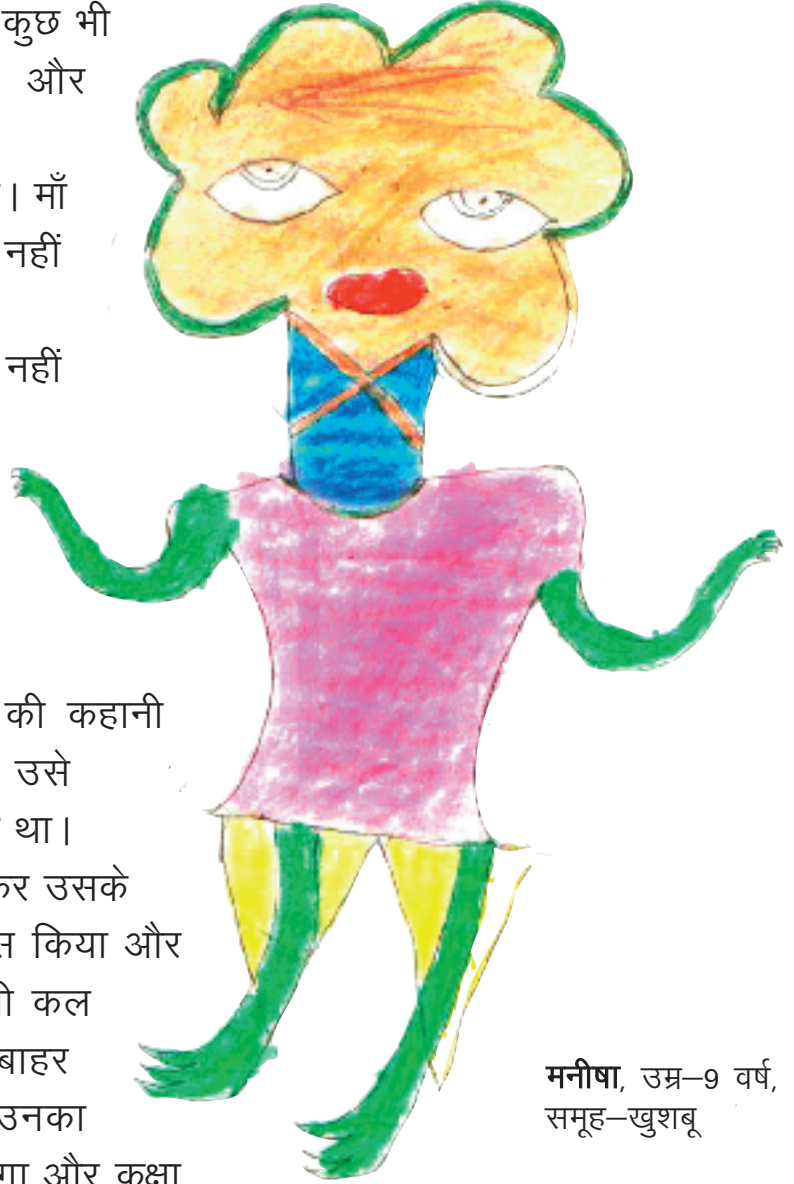 कुछ भी
और
। माँ
नहीं
नहीं
की कहानी
उसे
था।
उसके
किया और
कल
बाहर
उनका
और कक्षा
मनीषा, उम्र–9 वर्ष,
समूह–खुशबू